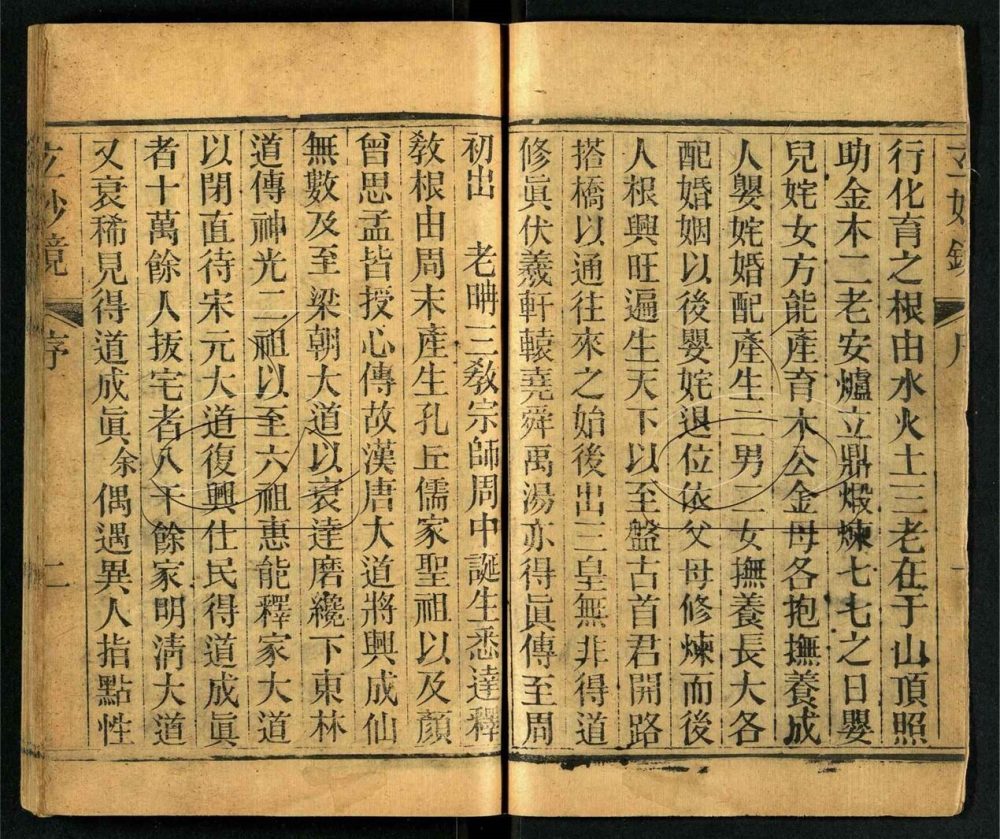 行化育之根由水火土三老在于山頂照
助金木二老安爐立鼎煅煉七七之日嬰
兒姹女方能產育木公金母各抱撫養成
人嬰姹婚配產生二男二女撫養長大各
配婚姻以後嬰姹退位依父母修煉而後
人根興旺遍生天下以至盤古首君開路
搭橋以通往來之始後出三皇無非得道
修眞伏羲軒轅堯舜禹湯亦得眞傳至周
初出 老聃三敎宗師周中誕生悉達釋
敎根由周末產生孔丘儒家聖祖以及顏
曾思孟皆授心傳故漢唐大道將興成仙
無數及至梁朝大道以衰達磨纔下東林
道傳神光二祖以至六祖惠能釋家大道
以閉直待宋元大道復興仕民得道成眞
者十萬餘人拔宅者八千餘家明淸大道
又衰稀見得道成眞余偶遇異人指點性
玄妙鏡 序 二